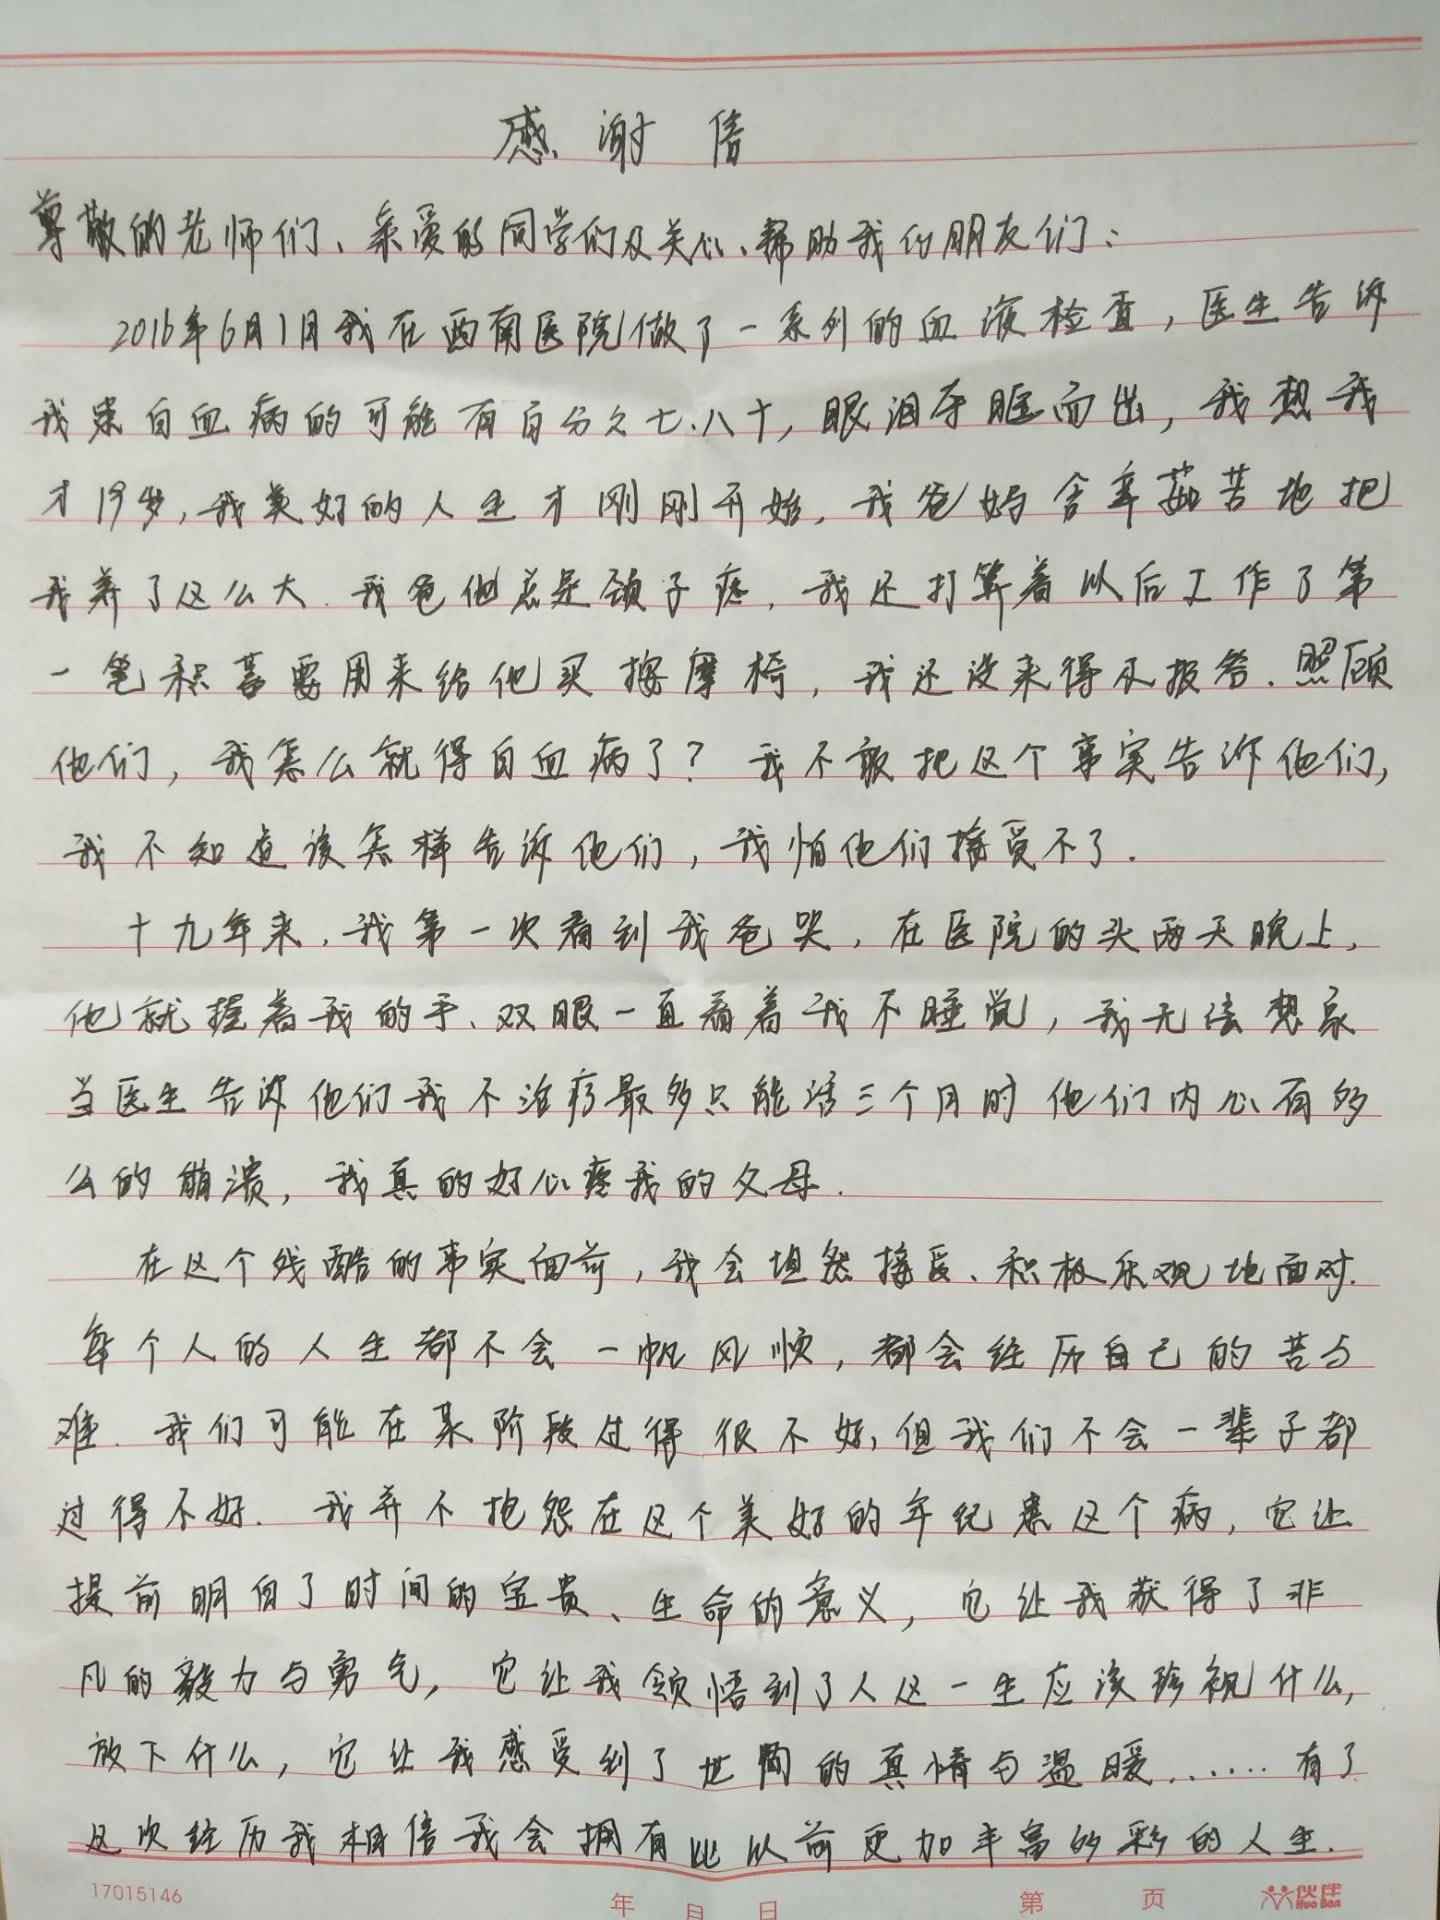 感谢信
尊敬的老师们、亲爱的同学们及关心、帮助我的朋友们：
2016年6月1日我在西南医院做了一系列的血液检查，医生告诉
我患白血病的可能有百分之七、八十，眼泪夺眶而出，我想我
才19岁，我美好的人生才刚刚开始，我爸妈含辛茹苦地把
我养了这么大，我爸他总是颈子疼，我还打算着以后工作了第
一笔积蓄要用来给他买按摩椅，我还没来得及报答、照顾
他们，我怎么就得白血病了？我不敢把这个事实告诉他们，
我不知道该怎样告诉他们，我怕他们接受不了．
十九年来，我第一次看到我爸哭，在医院的头两天晚上，
他就握着我的手、双眼一直看着我不睡觉，我无法想象
当医生告诉他们我不治疗最多只能活三个月时他们内心有多
么的崩溃，我真的好心疼我的父母．
在这个残酷的事实面前，我会坦然接受、积极乐观地面对．
每个人的人生都不会一帆风顺，都会经历自己的苦与
难．我们可能在某阶段过得很不好，但我们不会一辈子都
过得不好．我并不抱怨在这个美好的年纪患这个病，它让
提前明白了时间的宝贵、生命的意义，它让我获得了非
凡的毅力与勇气，它让我领悟到了人这一生应该珍视什么，
放下什么，它让我感受到了世间的真情与温暖……有了
这次经历我相信我会拥有比以前更加丰富多彩的人生．
17015146 年 月 日 第 页 伙伴 HuoBan